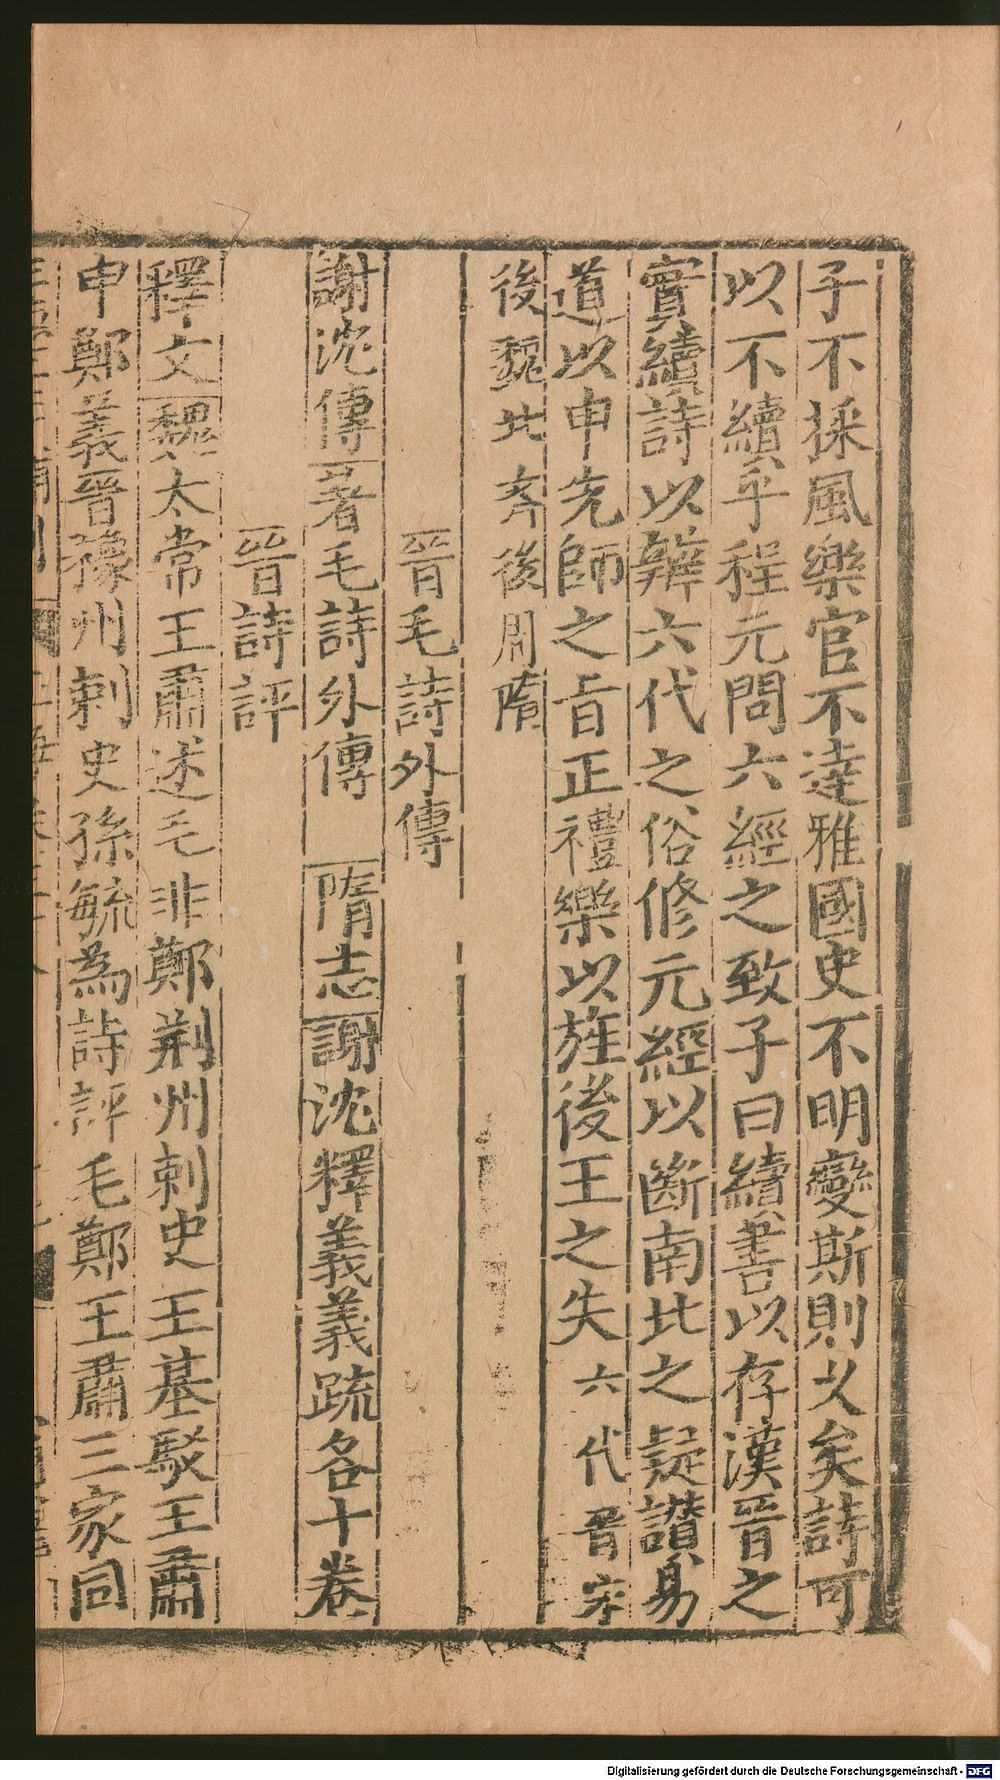 子不採風樂官不達雅國史不明變斯則乆矣詩可
以不續乎程元問六經之致子曰續書以存漢晉之
實續詩以辯六代之俗修元經以斷南北之疑讃易
道以申先師之旨正禮樂以旌後王之失六代晉宋
後魏北齐後周隋
晉毛詩外傳
謝沈傳著毛詩外傳 隋志謝沈釋義義疏各十卷
晉詩評
釋文魏太常王肅述毛非鄭荆州刺史王基駁王肅
申鄭義晉豫州刺史孫毓為詩評毛鄭王肅三家同
Digitalisierung gefördert durch die Deutsche Forschungsgemeinschaft - DFG